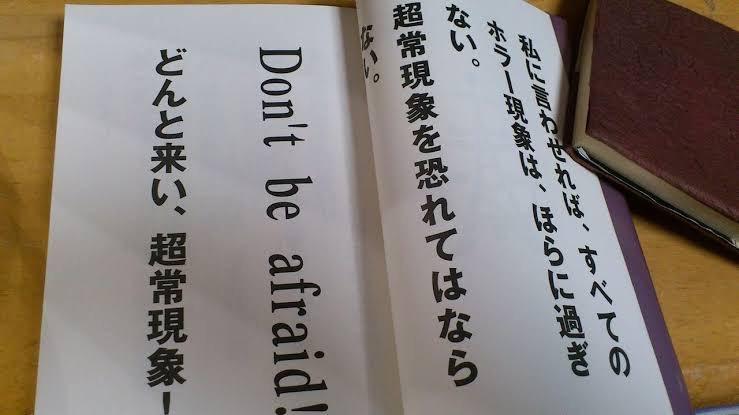 私に言わせれば、すべての
ホラー現象は、ほらに過ぎ
ない。
超常現象を恐れてはなら
ない。
Don't be afraid!
どんと来い、超常現象！